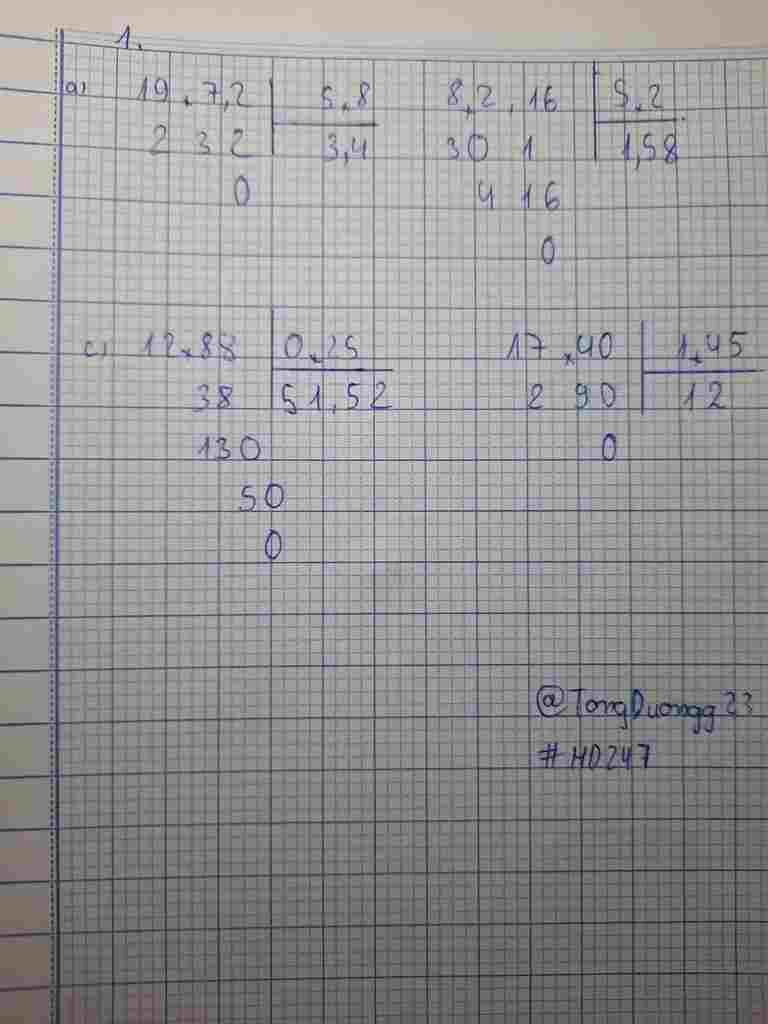 1.
a) 19.7,2 5.8 8,2.16 5.2
2 3 2 3,4 30 1 1,58
0 4 16
0
c) 12.88 0.25 17.40 1.45
38 51,52 2 90 12
130 0
50
0
@TongDuongg23
#HD247